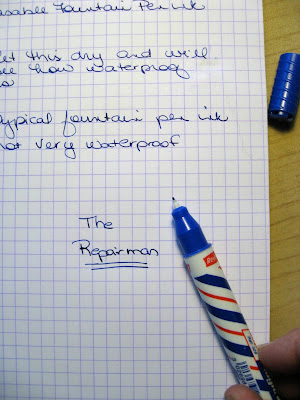 sable Fountain Pen ink
et this dry and will
ee how waterproof
ypical fountain pen ink
not very waterproof
The
Repairman